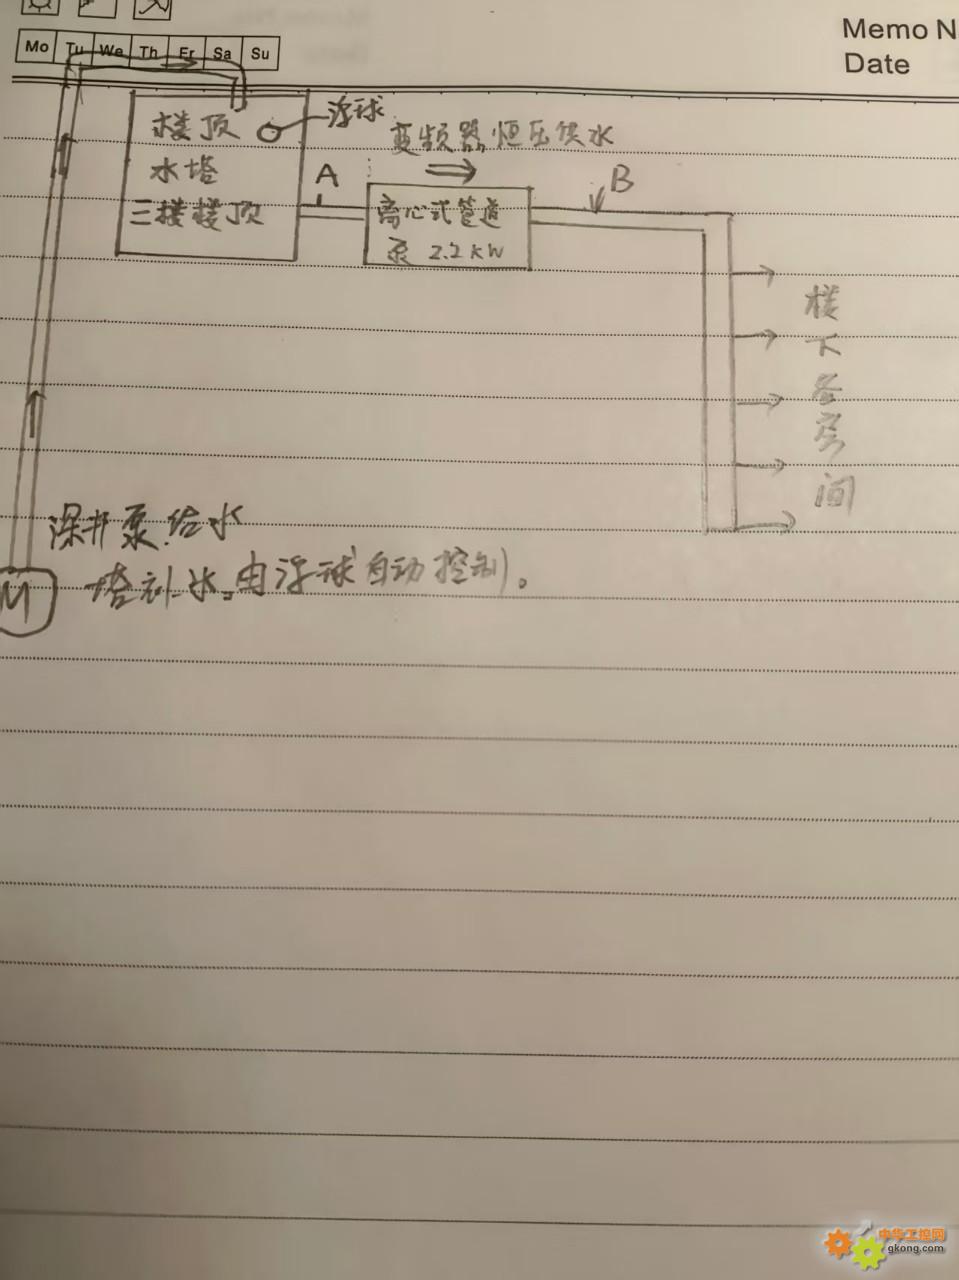 Memo N
Date
Mo Tu We Th Fr Sa Su
楼顶
水塔
三楼楼顶
浮球
变频器恒压供水
A
B
离心式管道
泵 2.2KW
楼
下
各
房
间
深井泵给水
塔补水。由浮球自动控制。
M
中华工控网
gkong.com